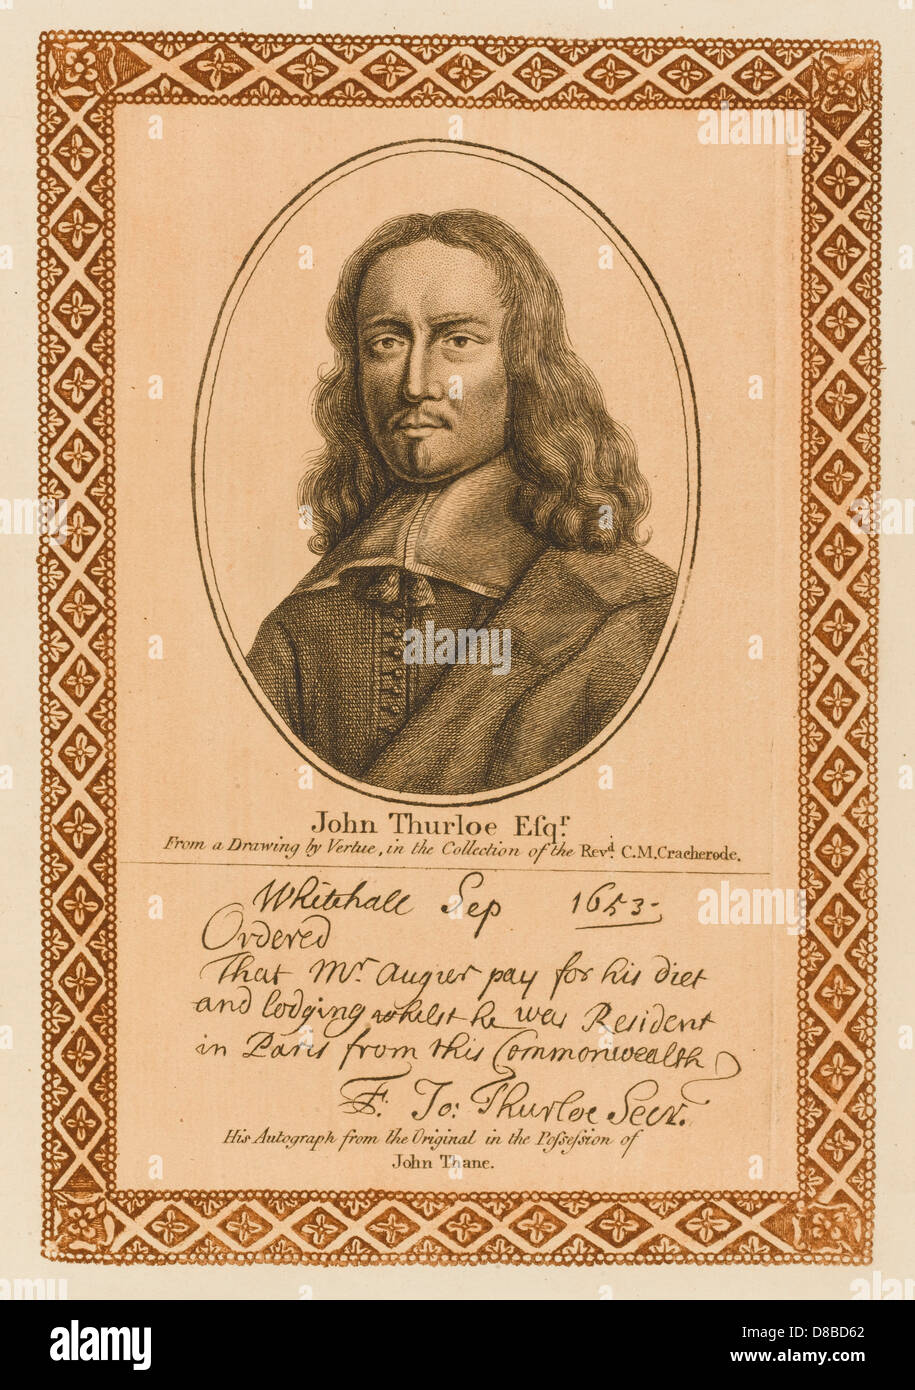 John Thurloe Eſqr.
From a Drawing by Vertue, in the Collection of the Revd. C.M.Cracherode.
Whitehall Sep 1653-
Ordered
That Mr. Augier pay for his diet
and lodging whilst he was Resident
in Paris from this Commonwealth
Jo: Thurloe Secr.
His Autograph from the Original in the Poſseſsion of
John Thane.
alamy
Image ID: D8BD62
www.alamy.com